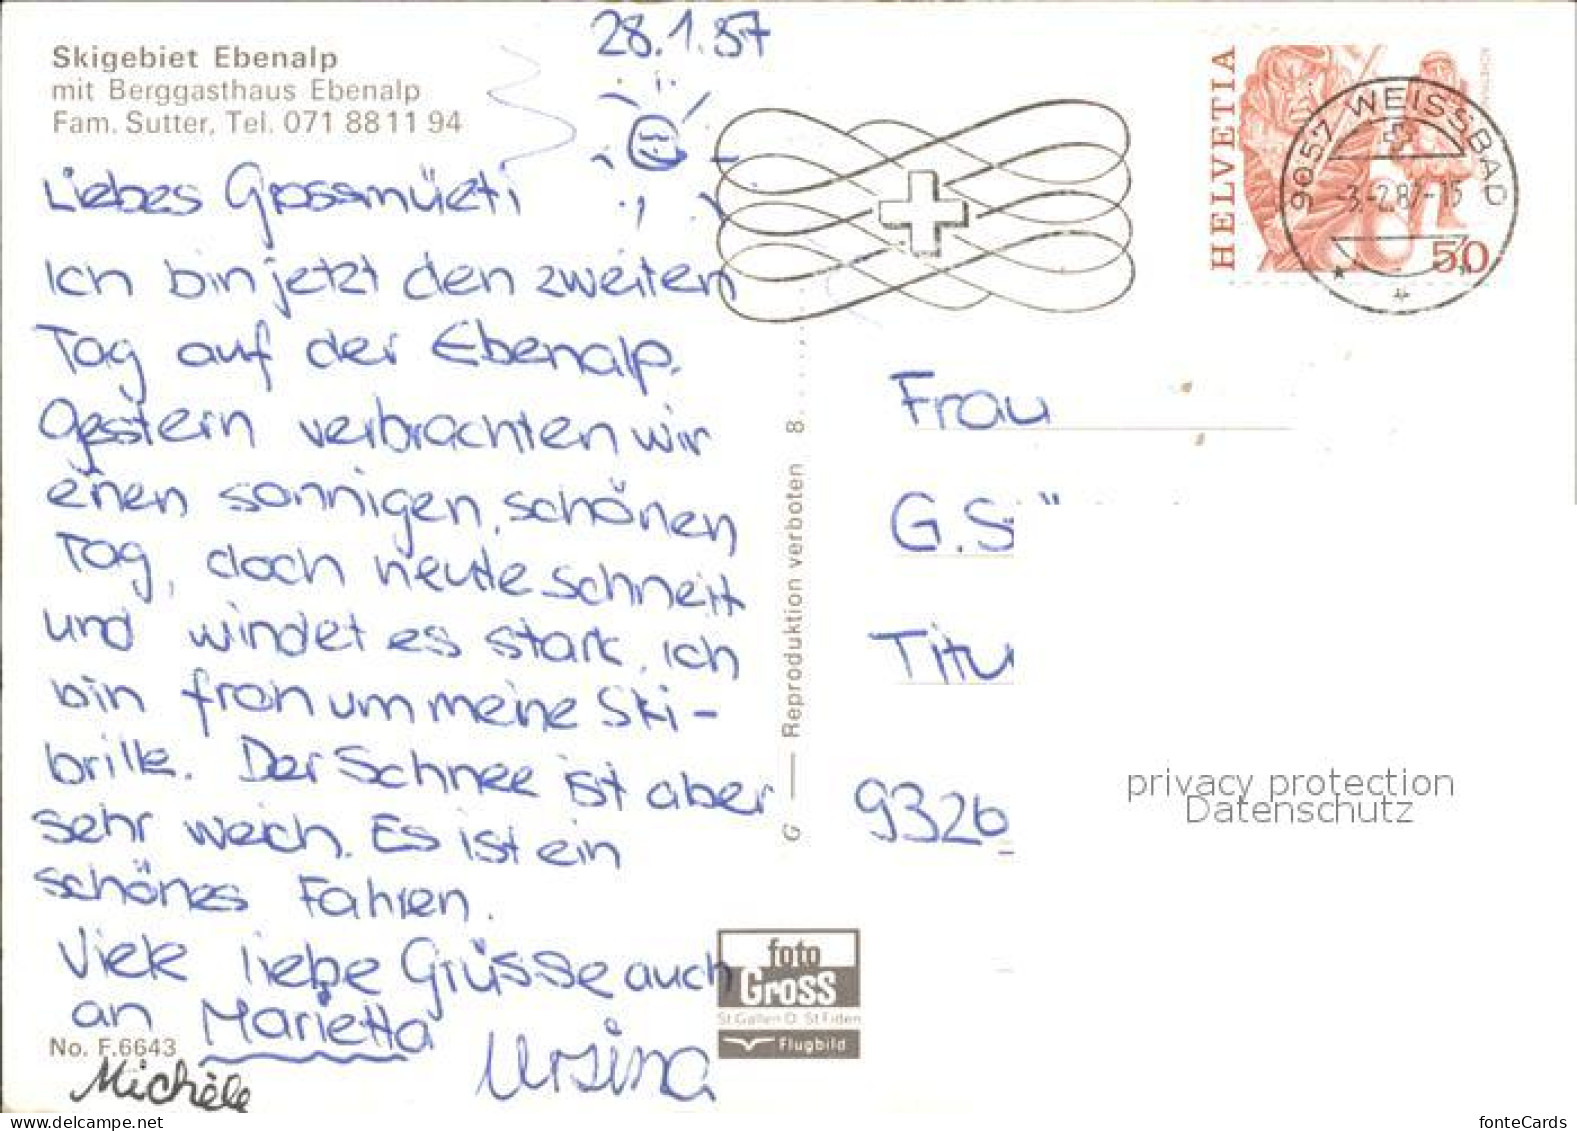 Skigebiet Ebenalp
mit Berggasthaus Ebenalp
Fam. Sutter, Tel. 071 88 11 94
28.1.87
Liebes Grossmüeti
Ich bin jetzt den zweiten
Tag auf der Ebenalp.
Gestern verbrachten wir
einen sonnigen, schönen
Tag, doch heute schneit
und windet es stark. Ich
bin froh um meine Ski-
brille. Der Schnee ist aber
sehr weich. Es ist ein
schönes Fahren.
Viele liebe Grüsse auch
an Marietta
Ursina
Michèle
No. F.6643
G — Reproduktion verboten 8.
foto
Gross
St.Gallen O. St.Fiden
Flugbild
HELVETIA
50
9057 WEISSBAD
-3.-2.87-15
Frau
G.S
Titu
9326
privacy protection
Datenschutz
delcampe.net
fonteCards